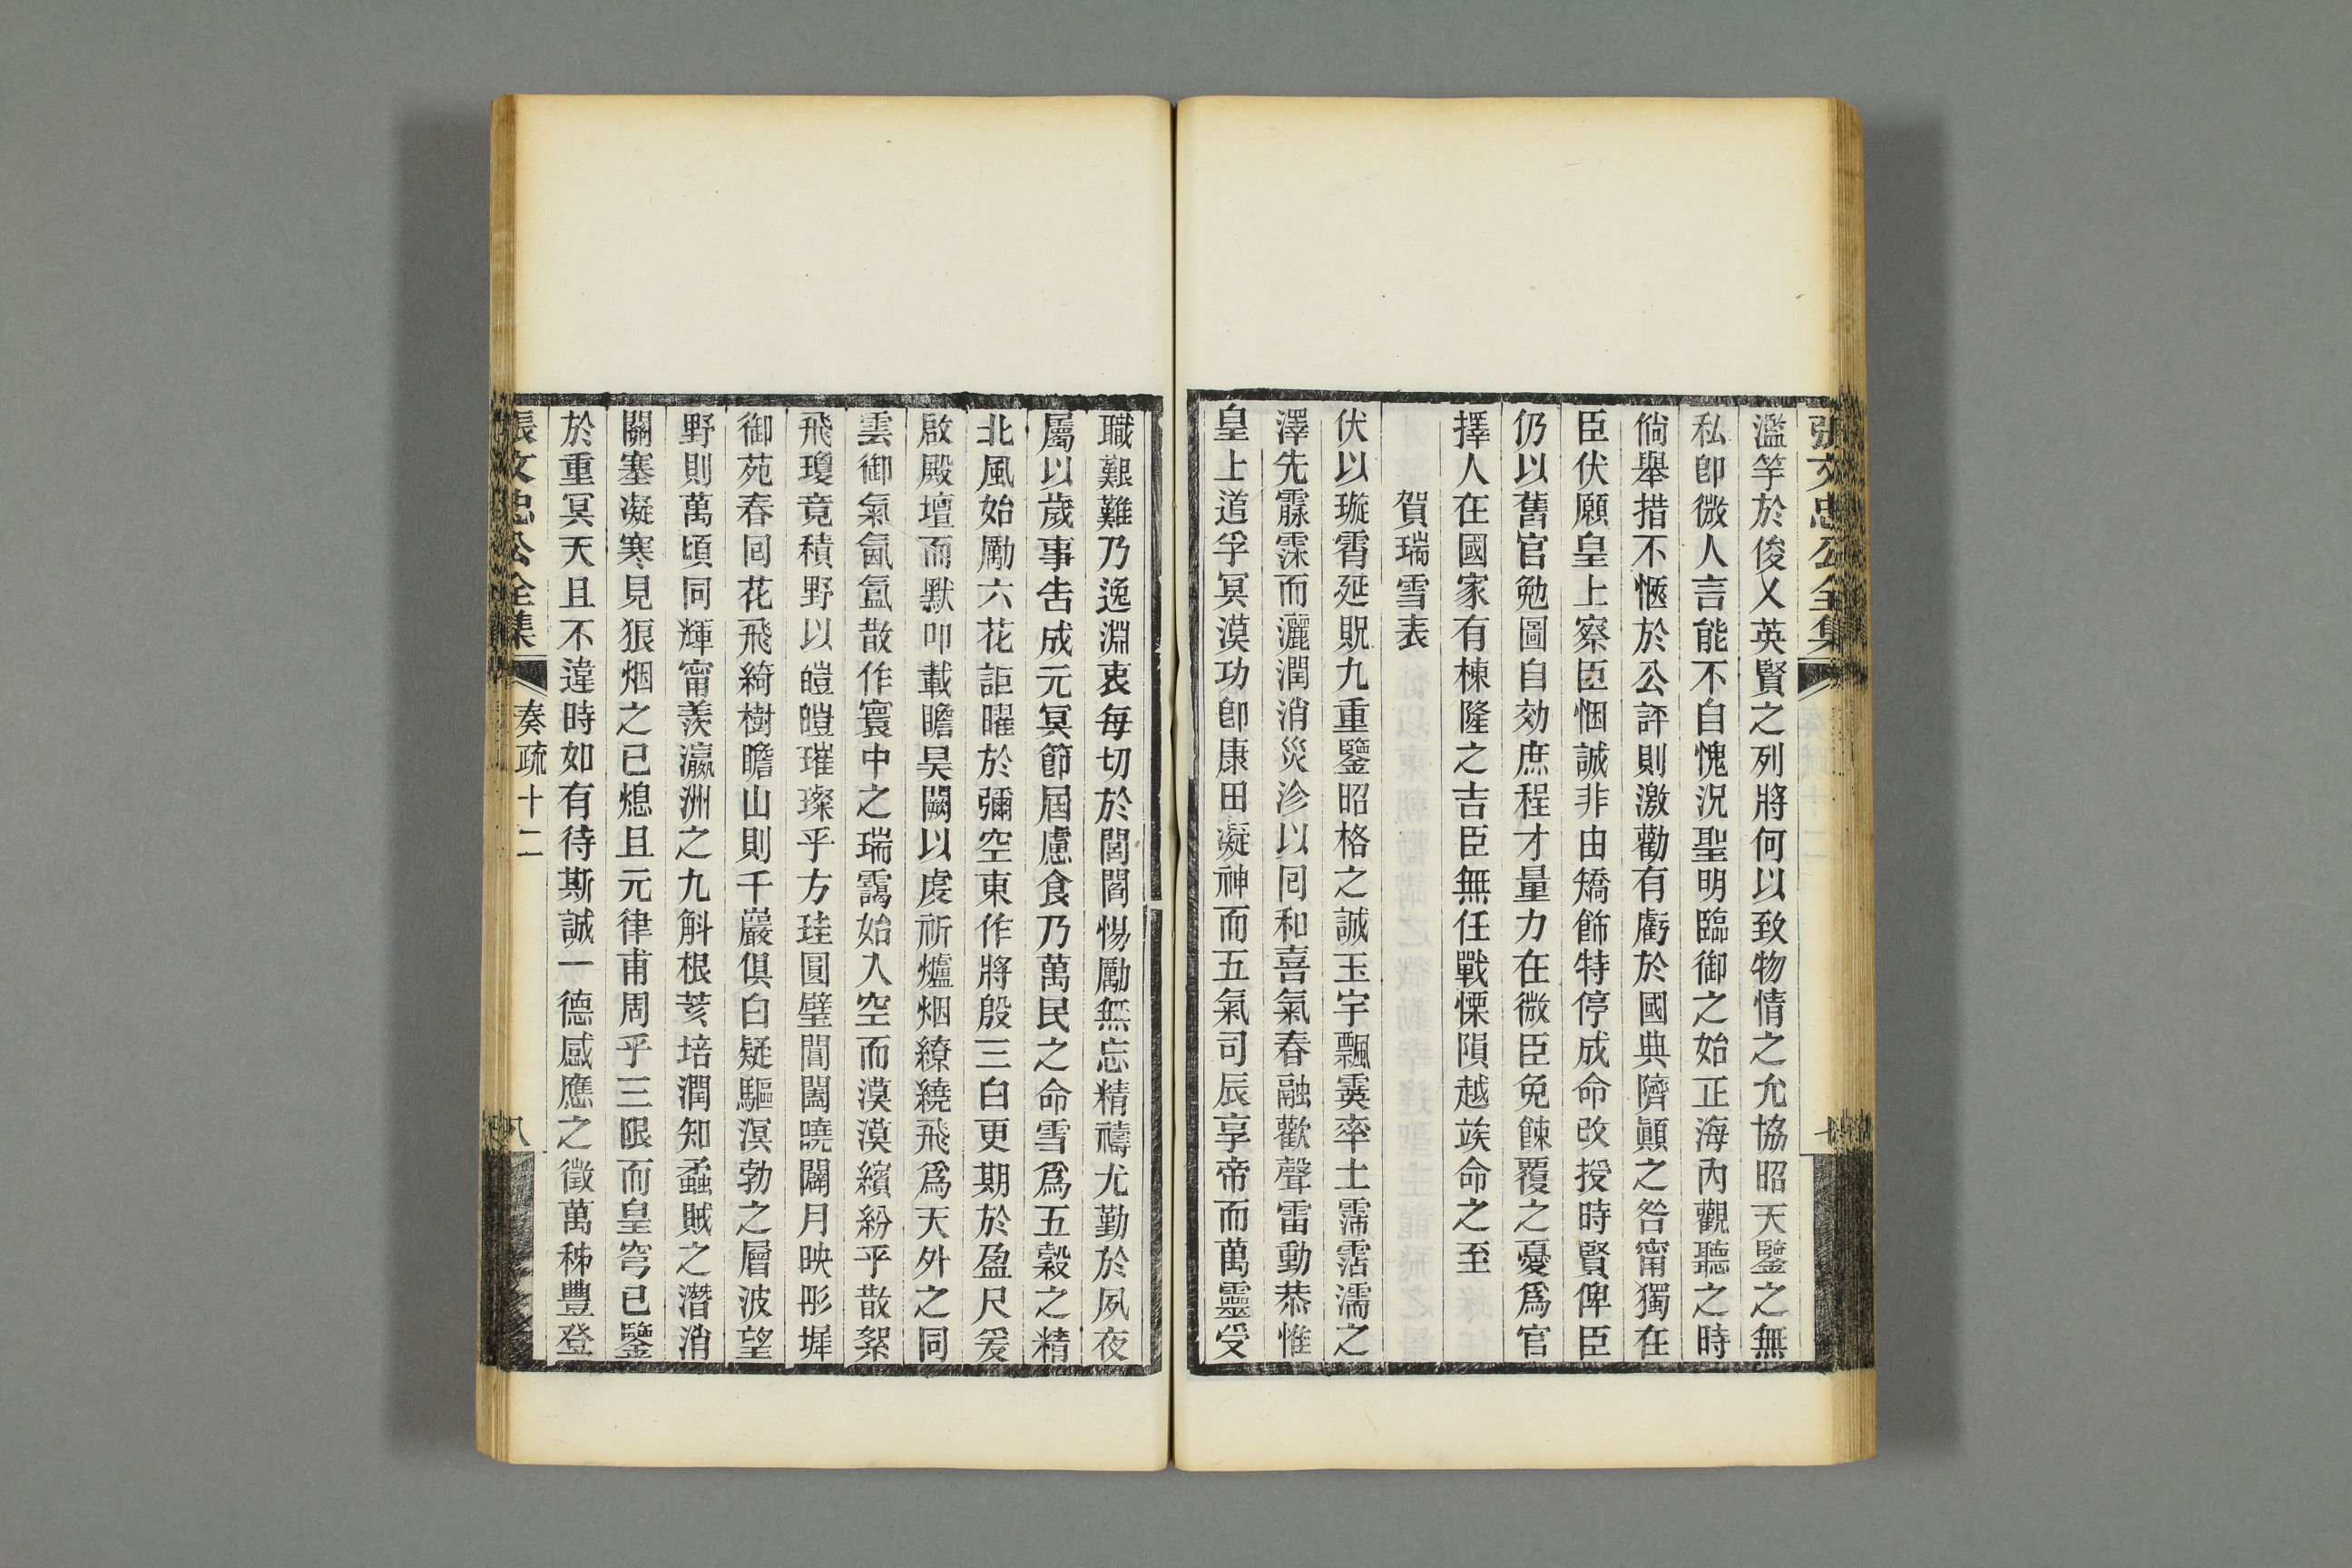 張文忠公全集
七
濫竽於俊乂英賢之列將何以致物情之允協昭天鑒之無
私卽微人言能不自愧況聖明臨御之始正海內觀聽之時
倘舉措不愜於公評則激勸有虧於國典隮顚之咎甯獨在
臣伏願皇上察臣悃誠非由矯飾特停成命改授時賢俾臣
仍以舊官勉圖自効庶程才量力在微臣免餗覆之憂爲官
擇人在國家有棟隆之吉臣無任戰慄隕越竢命之至
賀瑞雪表
伏以璇霄延貺九重鑒昭格之誠玉宇飄霙率土霈霑濡之
澤先霢霂而灑潤消災沴以囘和喜氣春融歡聲雷動恭惟
皇上道孚冥漠功卽康田凝神而五氣司辰享帝而萬靈受
職艱難乃逸淵衷每切於閭閻惕勵無忘精禱尤勤於夙夜
屬以歲事告成元冥節屆慮食乃萬民之命雪爲五穀之精
北風始勵六花詎曜於彌空東作將殷三白更期於盈尺爰
啟殿壇而默叩載瞻昊闕以虔祈爐烟繚繞飛爲天外之同
雲御氣氤氳散作寰中之瑞靄始入空而漠漠繽紛乎散絮
飛瓊竟積野以皚皚璀璨乎方珪圓璧閶闔曉闢月映彤墀
御苑春囘花飛綺樹瞻山則千巖俱白疑驅溟勃之層波望
野則萬頃同輝甯羨瀛洲之九斛根荄培潤知蟊賊之潛消
關塞凝寒見狼烟之已熄且元律甫周乎三限而皇穹已鑒
於重冥天且不違時如有待斯誠一德感應之徵萬秭豐登
張文忠公全集
奏疏十二
八